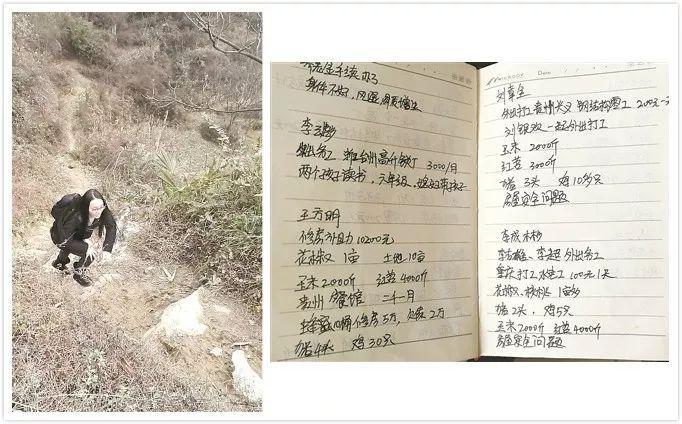 养老金手续办了
身体不好，风湿，骨质增生
李
务工 浙江台州高 打 3000/月
两个孩子读书，六年级， 带孩子
王方明
修房补助 10200元
花椒 1亩 土地 10亩
玉米2000斤 红苕 4000斤
贵州 餐馆 二十一月
修房5万，欠账2万
猪4头 鸡30只
Notebook Date
刘章全
外出打工 贵州兴义 钢结构 工 200元一天
刘银双 一起外出打工
玉米 2000斤
红苕 3000斤
猪3头 鸡10多只
房屋安全问题
李成林
李 雄、李超 外出务工
重庆打工 水电工 100元1天
花椒、核桃 1亩多
猪2头，鸡5只
玉米2000斤 红苕4000斤
房屋安全问题